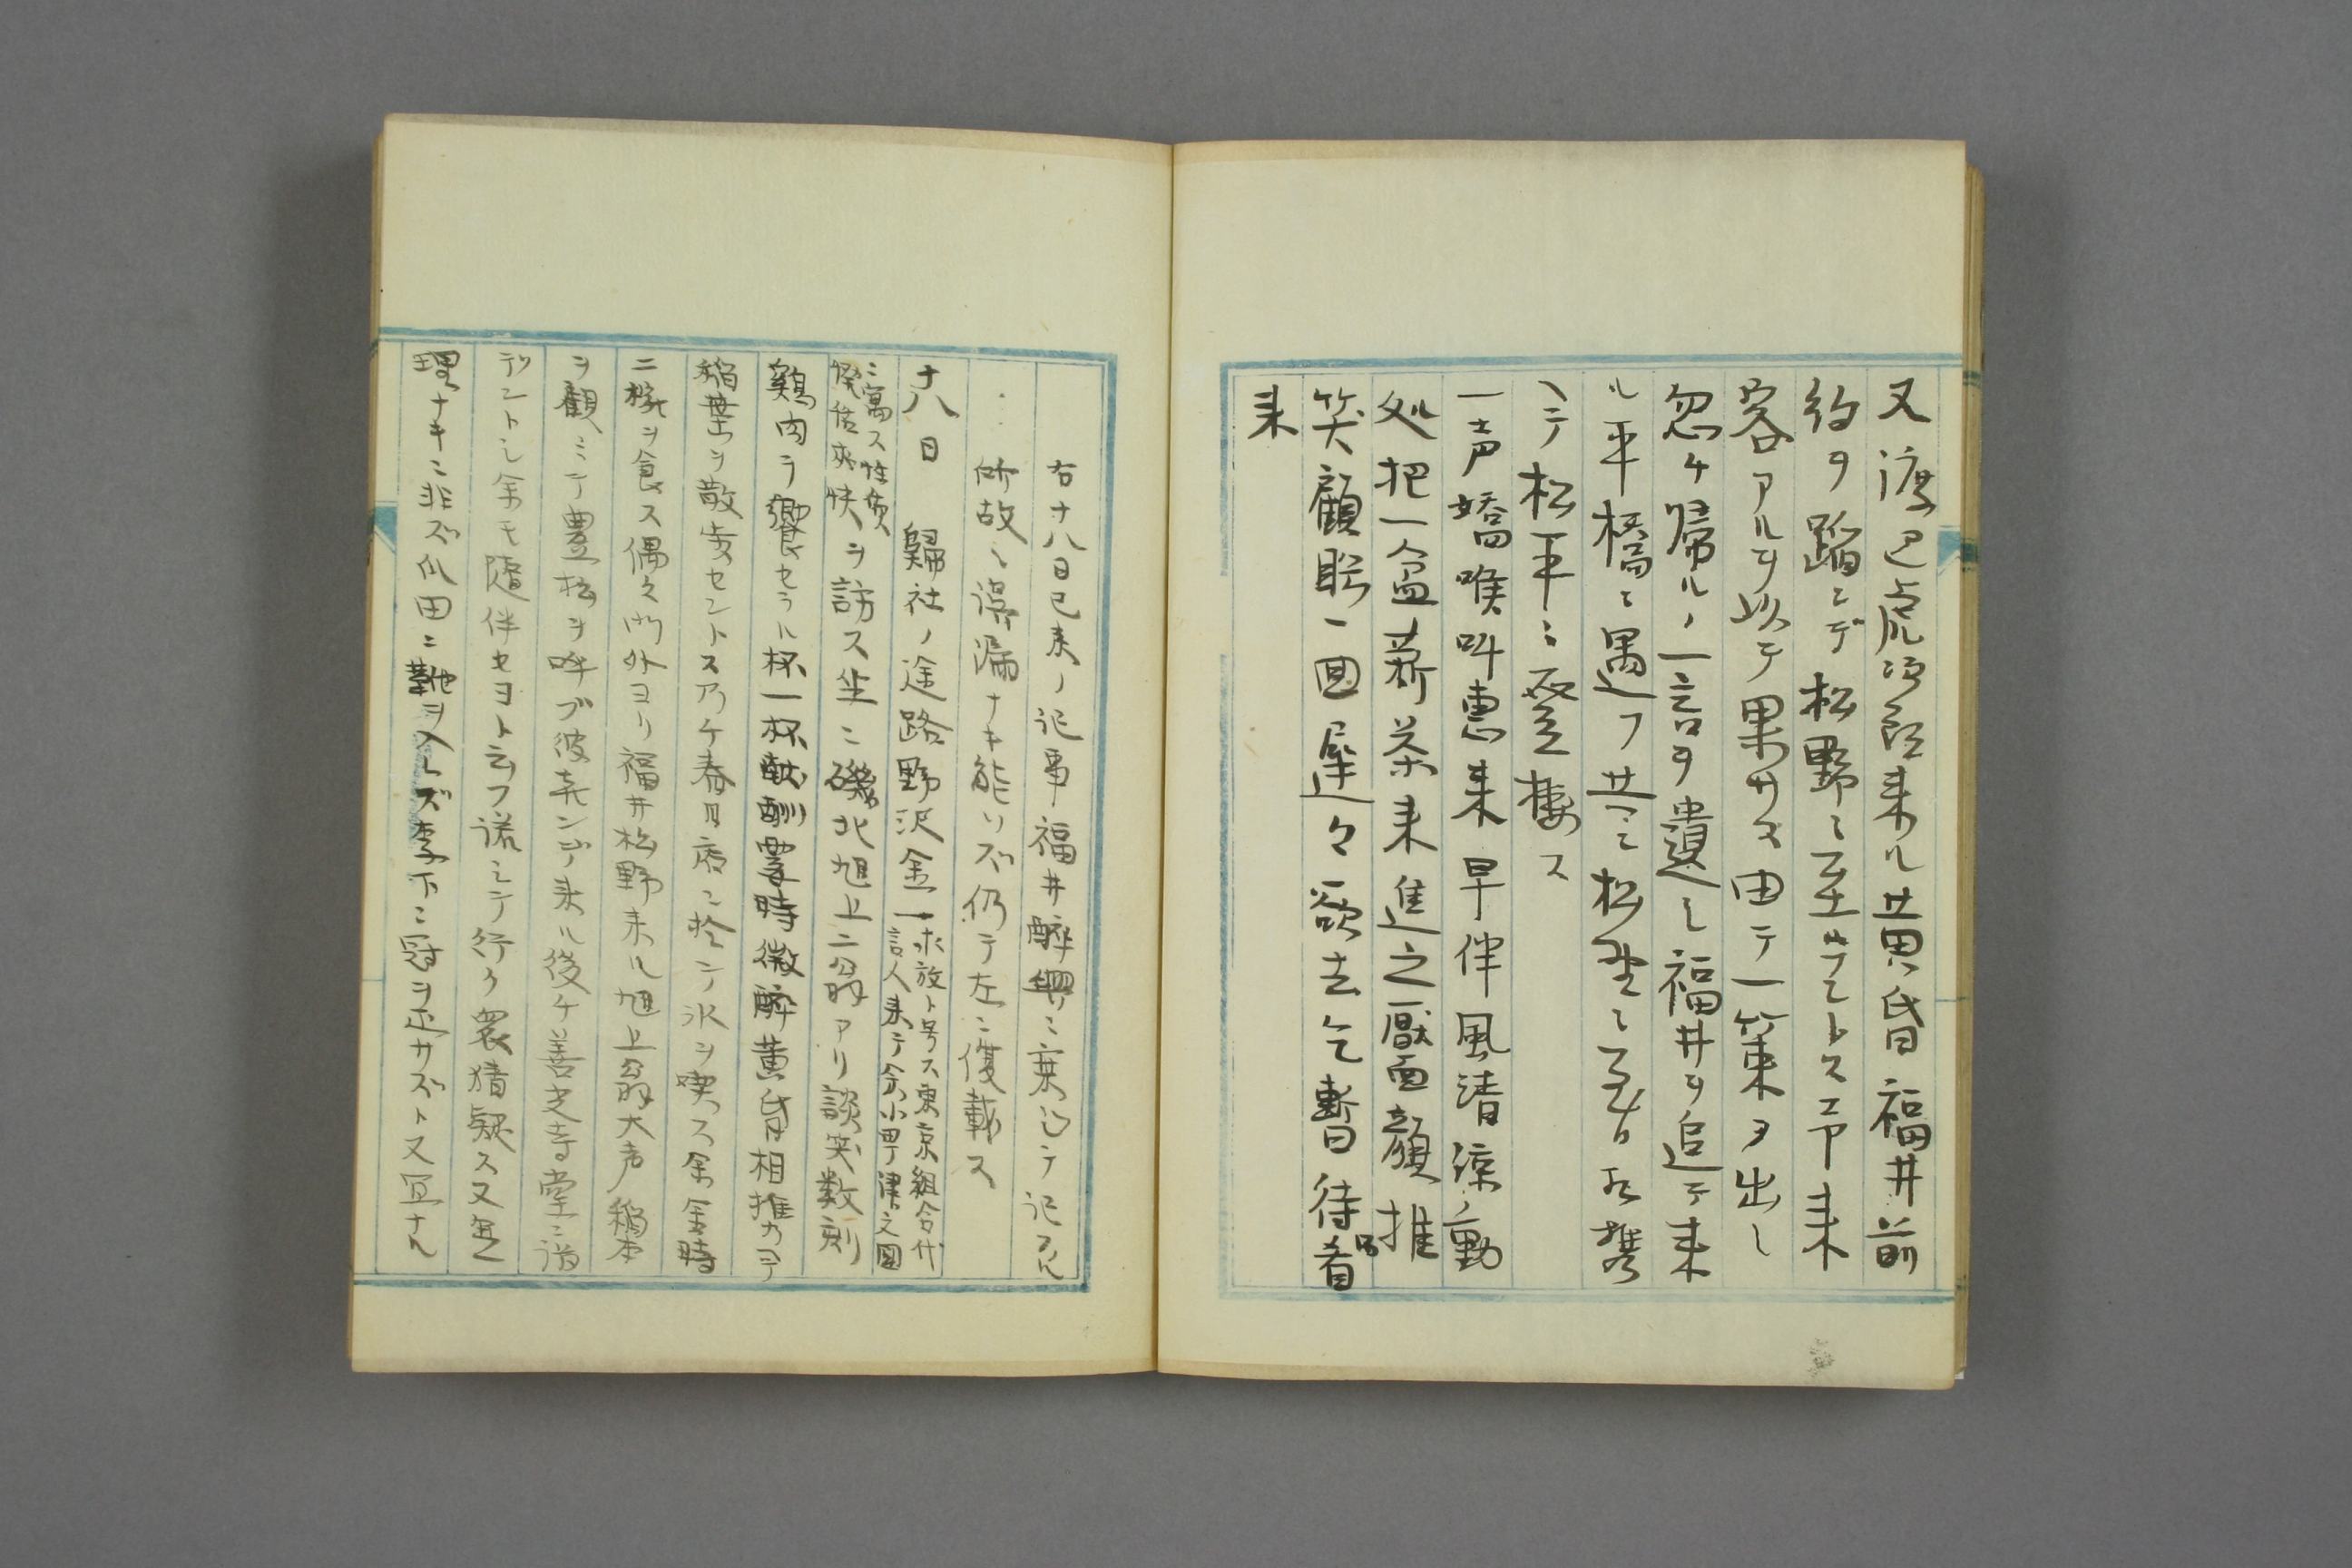 又渡辺虎次郎来ル黄昏福井前
約ヲ踏ンデ松野ニ至ラントス予来
客アルヲ以テ果サズ由テ一策ヲ出シ
忽チ帰ルノ一言ヲ遺シ福井ヲ追テ来
ル平橋ニ遇フ共ニ松野ニ至リ相携
ヘテ松平ニ登楼ス
一声嬌喉叫恵来早伴風清涼ノ動
処把一盆薪茶来進之靨面顔推
笑顧盻一回遅々欲去乞暫待着
来
右十八日已来ノ記事福井酔興ニ乗シテ記スル
所故ニ漏ナキ能ハズ仍テ左ニ復載ス
十八日 歸社ノ途路野沢金一求放ト号ス東京組合代
言人来テ今小甼津文國
ニ寓ス性質
爽快ヲ訪ス坐ニ磯北旭上二翁アリ談笑数刻
鶏肉ヲ饗セラル杯一杯献酬霎時微酔黄昏相携ヘテ
稲葉ヲ散歩セントス乃チ春月店ニ於テ氷ヲ喫ス余金時
二椀ヲ食ス偶々門外ヨリ福井松野来ル旭上翁大声稲本
ヲ観ミテ豊松ヲ呼ブ彼喜ンデ来ル後チ善光寺堂ニ詣
デントシ余モ随伴セヨト云フ諾シテ行ク衆猜疑ス又無
理ナキニ非ズ瓜田ニ靴ヲ入レズ李下ニ冠ヲ正サズト又宜ナル